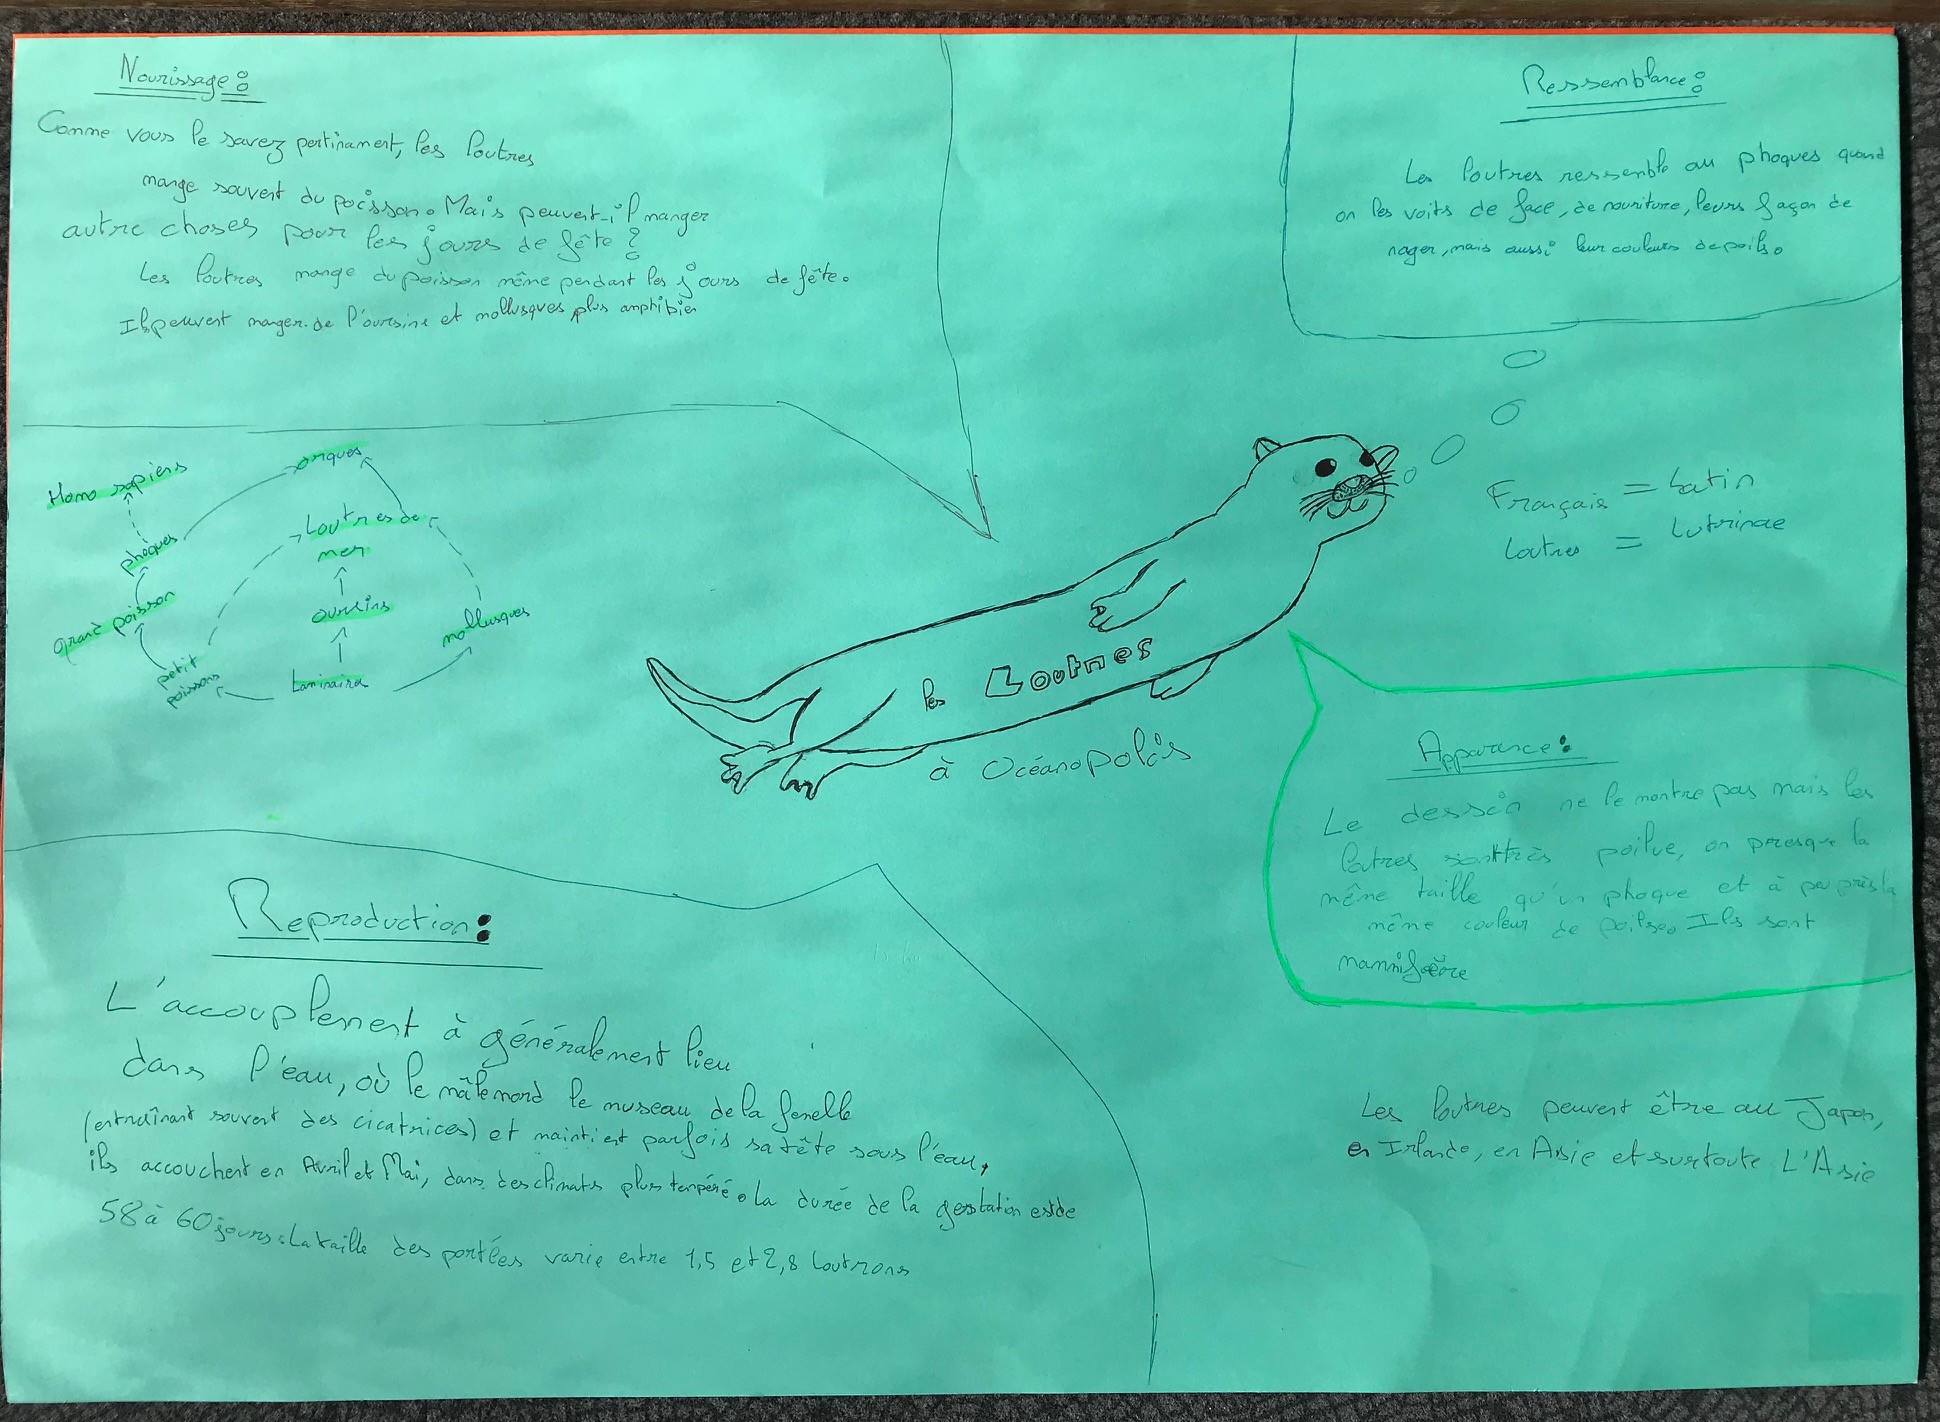 Nourissage :
Comme vous le savez pertinament, les loutres
mange souvent du poisson. Mais peuvent-il manger
autre choses pour les jours de fête ?
Les loutres mange du poisson même pendant les jours de fête.
Ils peuvent manger de l'oursins et mollusques plus amphibien
Ressemblance :
Les loutres ressemble au phoques quand
on les voits de face, de nouriture, leurs façon de
nager, mais aussi leur couleurs de poils.
Homo sapiens
orques
phoques
Loutres de
mer
grand poisson
oursins
mollusques
petit
poissons
Laminaire
Français = Latin
Loutres = Lutrinae
les Loutres
à Océanopolis
Apparance :
Le dessin ne le montre pas mais les
loutres sont très poilue, on presque la
même taille qu'un phoque et à peu près la
même couleur de poils. Ils sont
mammifère
Reproduction :
L'accouplement à généralement lieu
dans l'eau, où le mâle mord le museau de la femelle
(entraînant souvent des cicatrices) et maintient parfois sa tête sous l'eau,
ils accouchent en Avril et Mai, dans des climats plus tempéré. La durée de la gestation est de
58 à 60 jours. La taille des portées varie entre 1,5 et 2,8 loutrons
Les loutres peuvent être au Japon,
en Irlande, en Asie et surtoute L'Asie